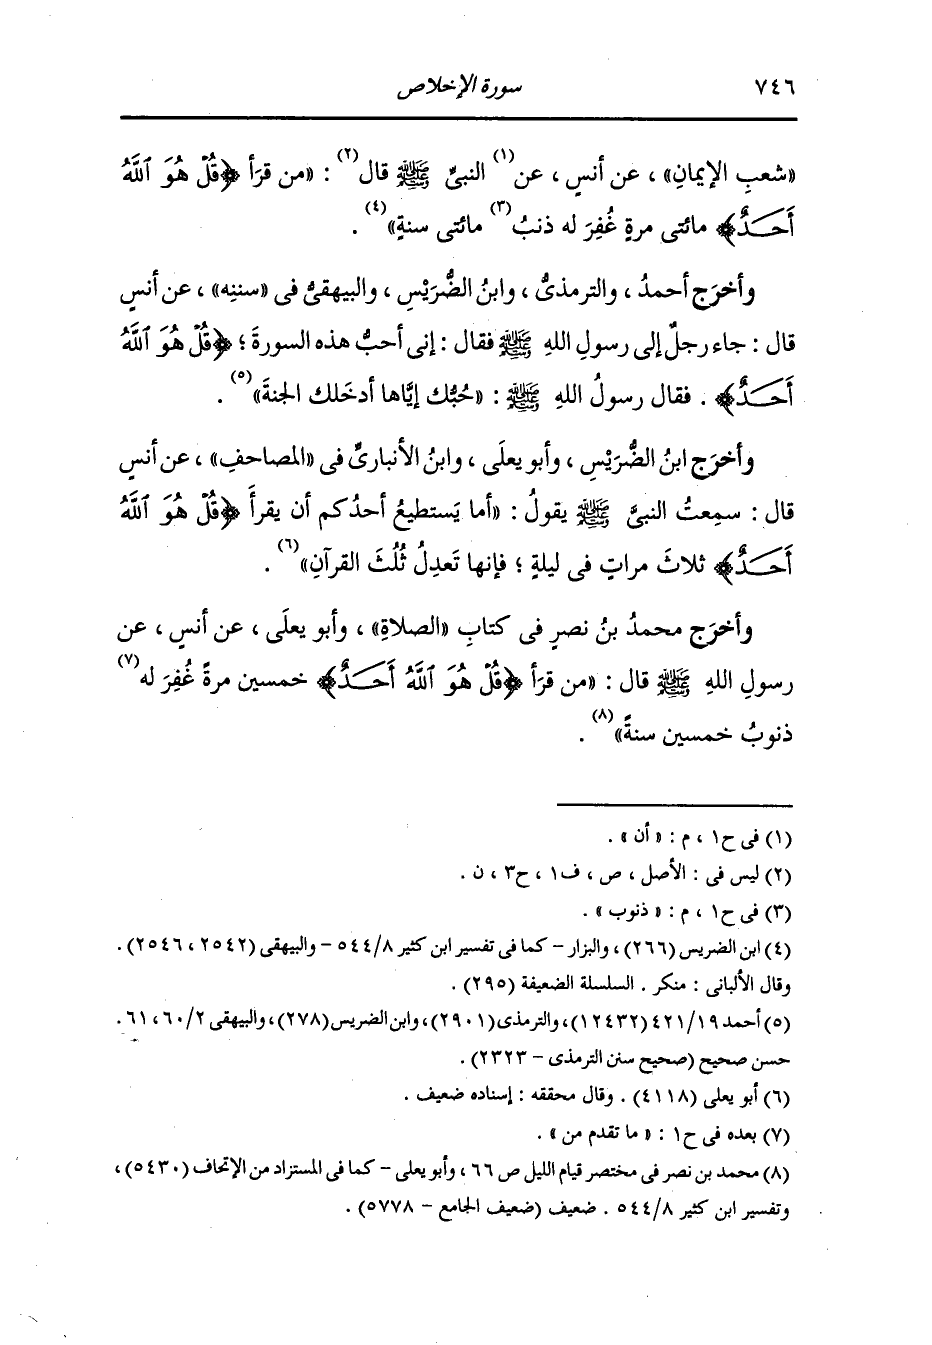 ٧٤٦ سورة الإخلاص
«شعبِ الإيمانِ» ، عن أنسٍ ، عن(١) النبىِّ ﷺ قال(٢) : «من قرَأ ﴿قُلْ هُوَ ٱللَّهُ
أَحَـدٌ﴾ مائتى مرةٍ غُفِرَ له ذنبُ(٣) مائتى سنةٍ»(٤) .
وأخرَج أحمدُ ، والترمذىُّ ، وابنُ الضُّرَيْسِ ، والبيهقىُّ فى «سننِه» ، عن أنسٍ
قال : جاء رجلٌ إلى رسولِ اللهِ ﷺ فقال : إنى أحبُّ هذه السورةَ ؛ ﴿قُلْ هُوَ ٱللَّهُ
أَحَـدٌ﴾ . فقال رسولُ اللهِ ﷺ : «حُبُّك إيَّاها أدخَلك الجنةَ»(٥) .
وأخرَج ابنُ الضُّرَيْسِ ، وأبو يعلَى ، وابنُ الأنبارىِّ فى «المصاحفِ» ، عن أنسٍ
قال : سمِعتُ النبىَّ ﷺ يقولُ : «أما يَستطيعُ أحدُكم أن يقرأَ ﴿قُلْ هُوَ ٱللَّهُ
أَحَـدٌ﴾ ثلاثَ مراتٍ فى ليلةٍ ؛ فإنها تَعدِلُ ثُلُثَ القرآنِ»(٦) .
وأخرَج محمدُ بنُ نصرٍ فى كتابِ «الصلاةِ» ، وأبو يعلَى ، عن أنسٍ ، عن
رسولِ اللهِ ﷺ قال : «من قرَأ ﴿قُلْ هُوَ ٱللَّهُ أَحَـدٌ﴾ خمسين مرةً غُفِرَ له(٧)
ذنوبُ خمسين سنةً»(٨) .
(١) فى ح١ ، م : «أن» .
(٢) ليس فى : الأصل ، ص ، ف١ ، ح٣ ، ن .
(٣) فى ح١ ، م : «ذنوب» .
(٤) ابن الضريس (٢٦٦) ، والبزار – كما فى تفسير ابن كثير ٥٤٤/٨ – والبيهقى (٢٥٤٢ ، ٢٥٤٦) .
وقال الألبانى : منكر . السلسلة الضعيفة (٢٩٥) .
(٥) أحمد ٤٢١/١٩ (١٢٤٣٢)، والترمذى (٢٩٠١)، وابن الضريس (٢٧٨)، والبيهقى ٦٠/٢، ٦١ .
حسن صحيح (صحيح سنن الترمذى – ٢٣٢٣) .
(٦) أبو يعلى (٤١١٨) . وقال محققه : إسناده ضعيف .
(٧) بعده فى ح١ : «ما تقدم من» .
(٨) محمد بن نصر فى مختصر قيام الليل ص ٦٦ ، وأبو يعلى – كما فى المستزاد من الإتحاف (٥٤٣٠) ،
وتفسير ابن كثير ٥٤٤/٨ . ضعيف (ضعيف الجامع – ٥٧٧٨) .